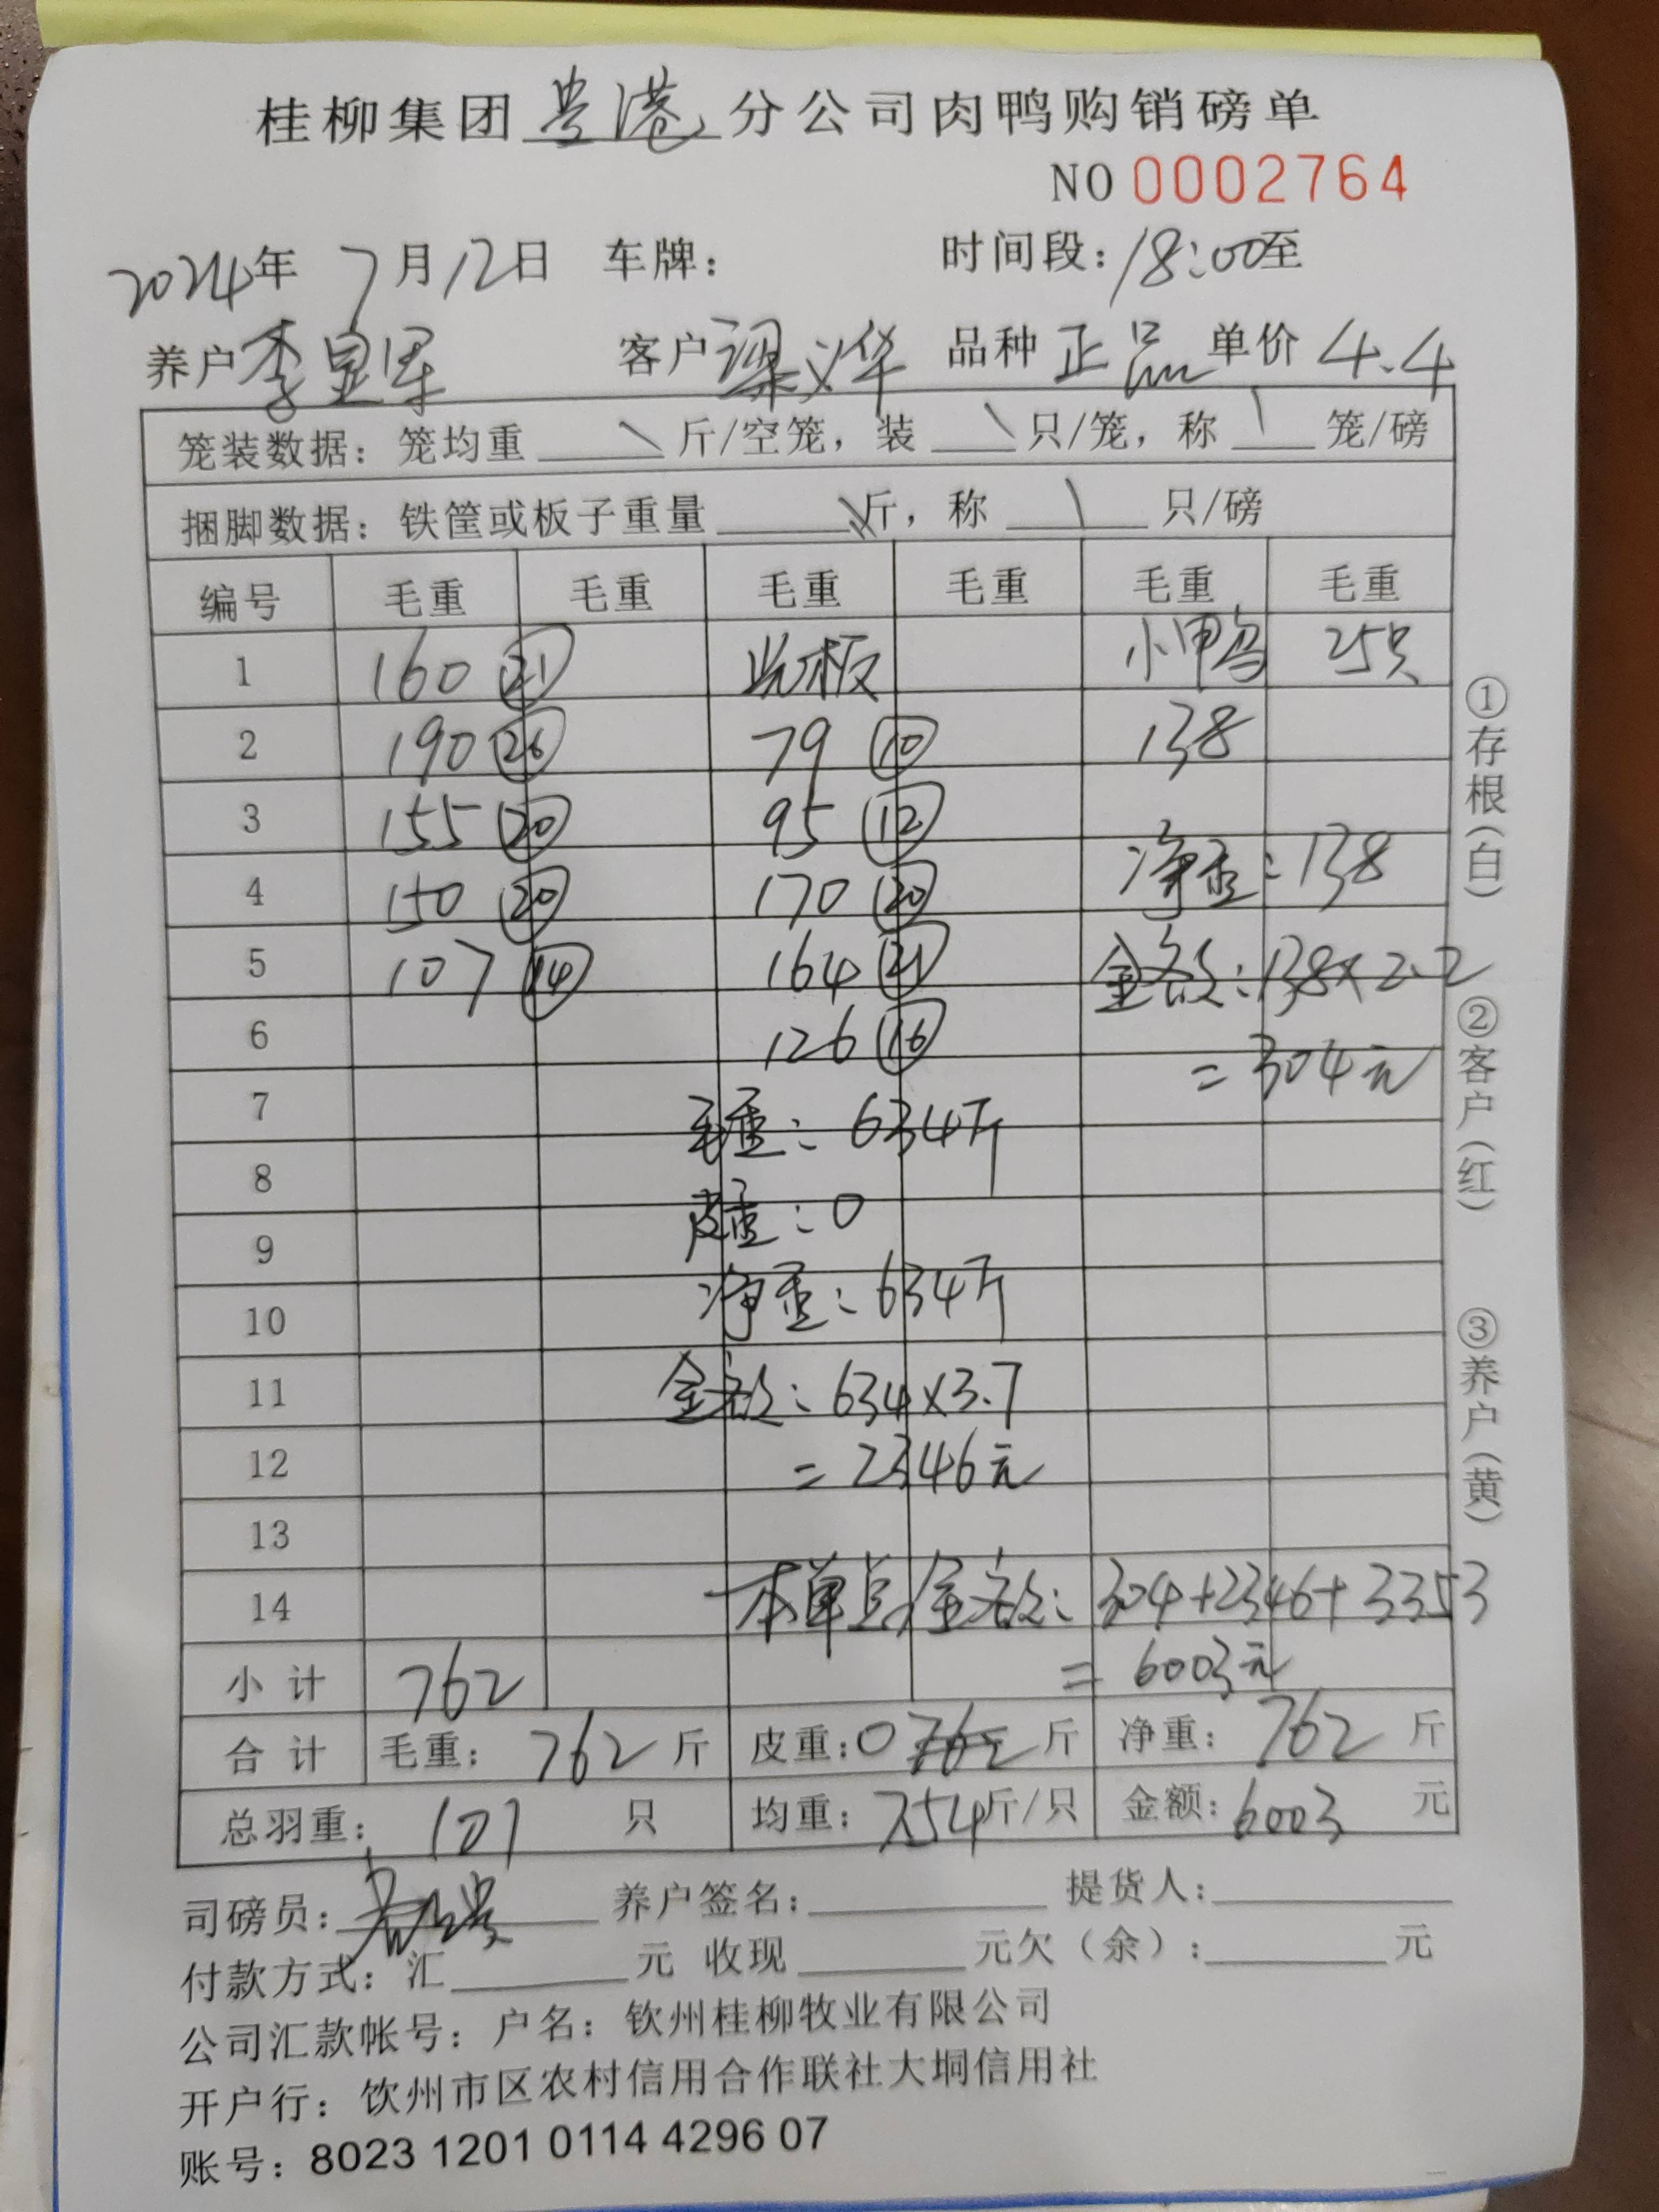 桂柳集团贵港分公司肉鸭购销磅单
NO 0002764
2024年 7月12日 车牌： 时间段：18:00至
养户 李显军 客户 梁义华 品种 正品 单价 4.4
笼装数据：笼均重 \ 斤/空笼，装 \ 只/笼，称 \ 笼/磅
捆脚数据：铁筐或板子重量 \ 斤，称 \ 只/磅
编号 毛重 毛重 毛重 毛重 毛重 毛重
1 160 ㉑ 光板 小鸭 25只
2 190 ㉖ 79 ⑩ 138
3 155 ⑳ 95 ⑫
4 150 ⑳ 170 ⑳ 净重：138
5 107 ⑭ 164 ㉑ 金额：138×2.2
6 126 ⑯ =304元
7 毛重：634斤
8
9 皮重：0
10 净重：634斤
11 金额：634×3.7
12 =2346元
13
14 本单总金额：304+2346+3353
小计 762 =6003元
合计 毛重：762斤 皮重：0 762 斤 净重：762斤
总羽重：101 只 均重：7.54斤/只 金额：6003 元
司磅员： 养户签名： 提货人：
付款方式：汇 元 收现 元欠（余）： 元
公司汇款帐号：户名：钦州桂柳牧业有限公司
开户行：饮州市区农村信用合作联社大垌信用社
账号：8023 1201 0114 4296 07
①存根（白）
②客户（红）
③养户（黄）